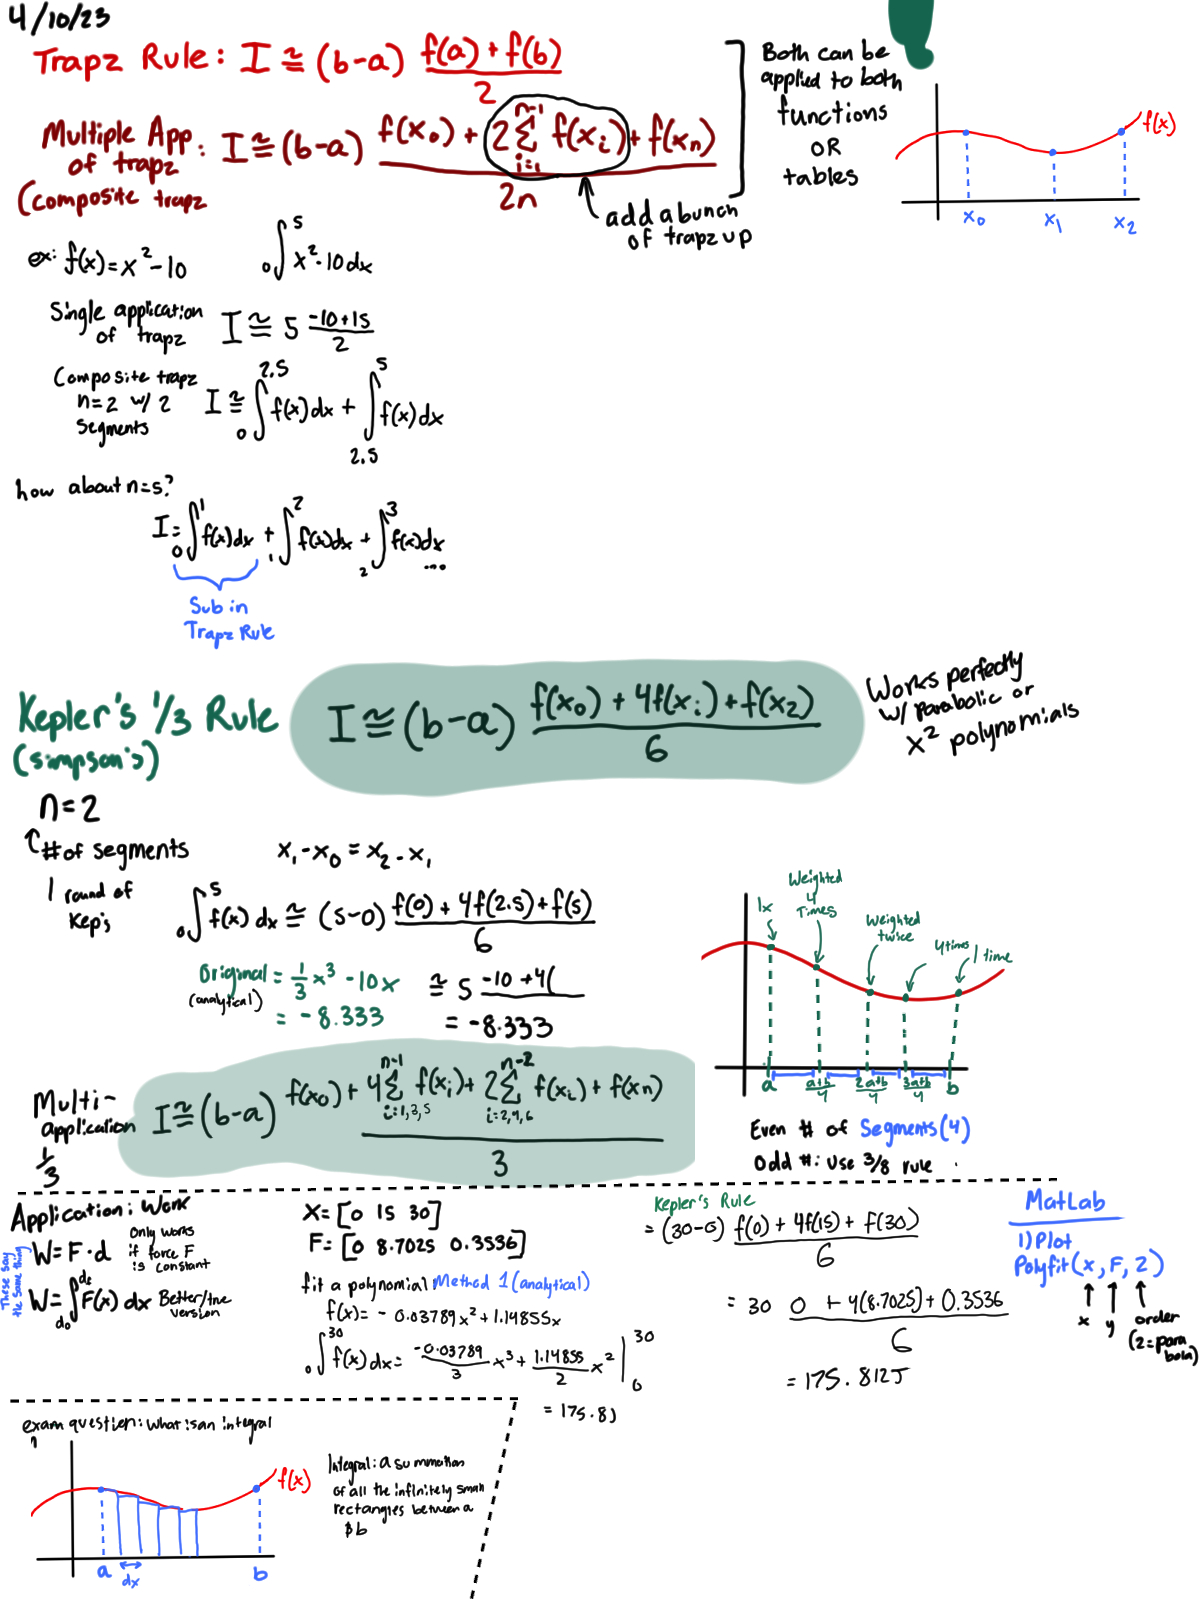 4/10/23
Trapz Rule: I ≅ (b-a) f(a) + f(b) / 2
Multiple App of trapz: I ≅ (b-a) f(x₀) + 2 Σ_{i=1}^{n-1} f(xᵢ) + f(xₙ) / 2n
(Composite trapz
add a bunch
of trapz up
Both can be
applied to both
functions
OR
tables
f(x)
x₀ x₁ x₂
ex: f(x) = x² - 10 ₀∫⁵ x² - 10 dx
Single application
of trapz I ≅ 5 -10+15 / 2
Composite trapz
n=2 w/ 2
Segments
I ≅ ₀∫^2.5 f(x) dx + _2.5∫⁵ f(x) dx
how about n=5?
I = ₀∫¹ f(x) dx + ₁∫² f(x) dx + ₂∫³ f(x) dx ....
Sub in
Trapz Rule
Kepler's 1/3 Rule
(simpson's)
I ≅ (b-a) f(x₀) + 4f(xᵢ) + f(x₂) / 6
Works perfectly
w/ parabolic or
x² polynomials
n=2
# of segments
x₁ - x₀ = x₂ - x₁
1 round of
Kep's
₀∫⁵ f(x) dx ≅ (5-0) f(0) + 4f(2.5) + f(5) / 6
Original = 1/3 x³ - 10x
(analytical)
= -8.333
≅ 5 -10 + 4(
= -8.333
Weighted
4
Times
1x
Weighted
twice
4 times
1 time
a a+b/4 2 a+b/4 3 a+b/4 b
Even # of Segments (4)
Odd #: use 3/8 rule
Multi-
application
1/3
I ≅ (b-a) f(x₀) + 4 Σ_{i=1,3,5}^{n-1} f(xᵢ) + 2 Σ_{i=2,4,6}^{n-2} f(xᵢ) + f(xₙ) / 3
Application: Work
W = F·d
Only works
if force F
is constant
These say
the same thing
W = _{d₀}∫^{df} F(x) dx Better/tne
version
X = [0 15 30]
F = [0 8.7025 0.3536]
fit a polynomial Method 1 (analytical)
f(x) = -0.03789x² + 1.14855x
₀∫³⁰ f(x) dx = -0.03789/3 x³ + 1.14855/2 x² |₀³⁰
= 175.8J
Kepler's Rule
= (30-0) f(0) + 4f(15) + f(30) / 6
= 30 0 + 4(8.7025) + 0.3536 / 6
= 175.812J
MatLab
1) Plot
Polyfit(x, F, 2)
x y order
(2=para
bola)
exam question: what is an integral
?
f(x)
a dx b
Integral: a summation
of all the infinitely small
rectangles between a
& b